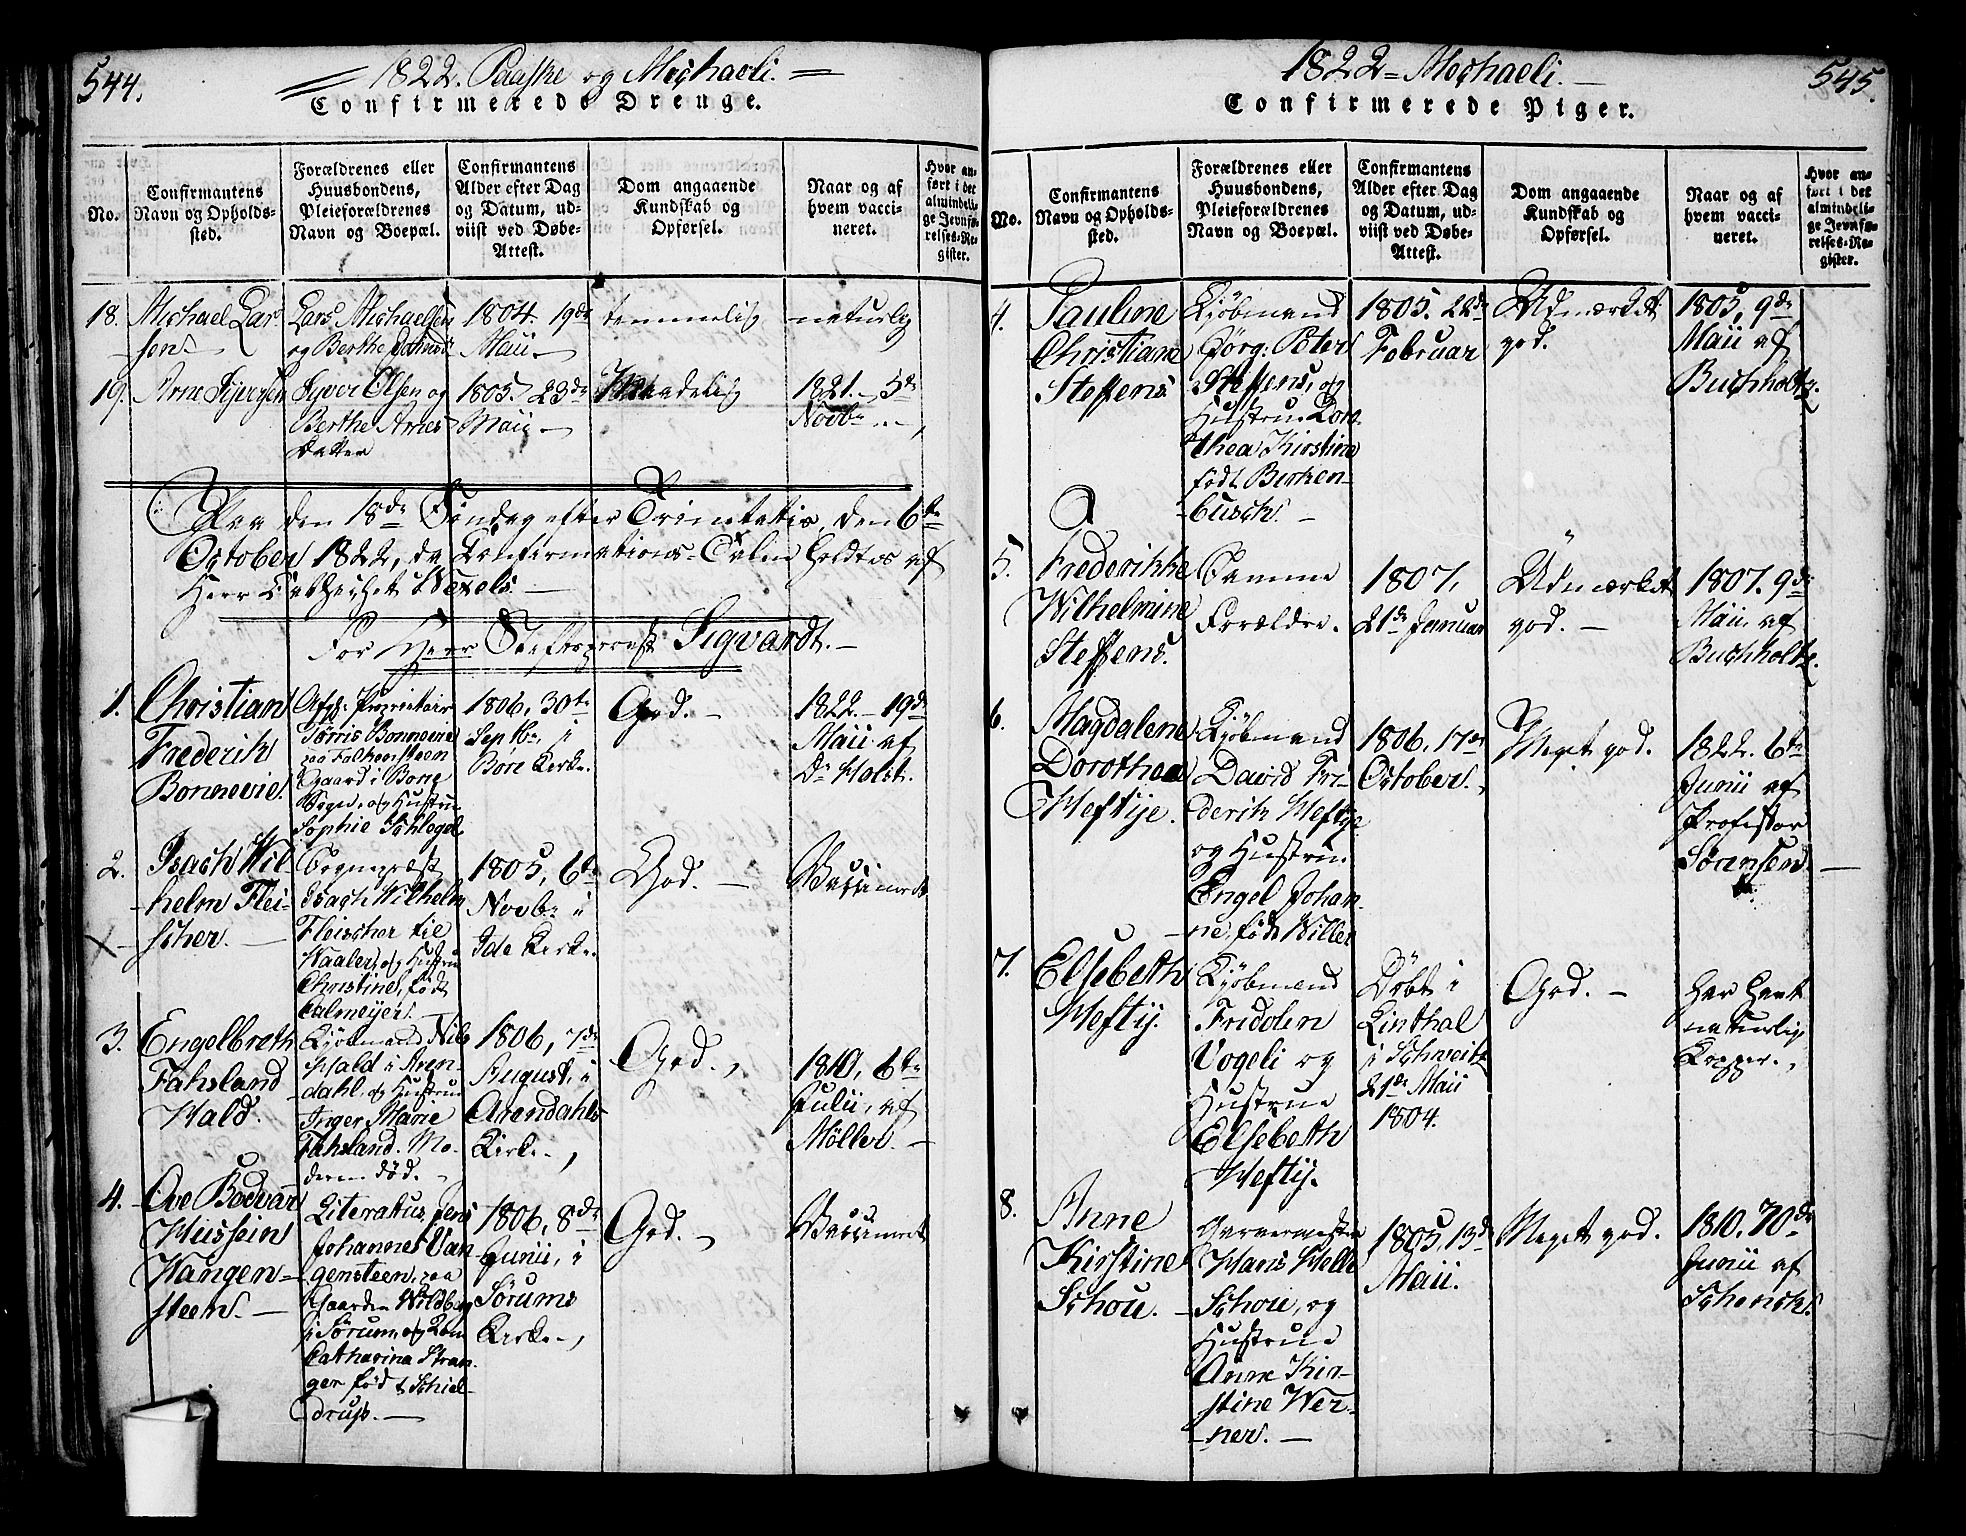 544.
1822. Paaske og Michaeli.
Confirmerede Drenge.
No.
Confirmantens
Navn og Opholds-
sted.
Forældrenes eller
Huusbondens,
Pleieforældrenes
Navn og Boepæl.
Confirmantens
Alder efter Dag
og Datum, ud-
viist ved Døbe-
Attest.
Dom angaaende
Kundskab og
Opførsel.
Naar og af
hvem vacci-
neret.
Hvor an-
ført i det
almindeli-
ge Jevnfø-
relses-Re-
gister.
18.
Michael Lar-
sen.
Lars Michaelsen
og Berthe
1804. 19de
Maii
temmelig
naturlig
19.
Arne Syversen
Syver Olsen og
Berthe Arnes
Datter
1805. 23de
Maii
1821. 5te
Novbr.
Paa den 18de Søndag efter Trinitatis, den 6te
October 1822, da Confirmations-Talen holdtes af
Herr Catechet Wexels.
For Herr Stiftsprovst Sigvardt.
1.
Christian
Frederik
Bonnevie.
Afg. Proprietair
Tørris Bonnevie
paa Falkensteen
Gaard i Borre
Sogn, og Hustru
Sophie Schlegel
1806, 30te
Septbr. i
Børe Kirke.
God.
1822. 19de
Maii af
Dr Holst.
2.
Isach Wil-
helm Flei-
scher.
Sognepræst
Isach Wilhelm
Fleischer til
Waaler, og Hustru
Christine, født
Calmeyer.
1805, 6te
Novbr i
Ide Kirke.
God.
Vaccineret
3.
Engelbreth
Fahsland
Hald.
Kjøbmand Nils
Hald i Aren-
dahl, og Hustru
Inger Marie
Fahsland. Mo-
deren død.
1806, 7de
August, i
Arendahls
Kirke.
God.
1810, 6te
Julii, af
Möller
4.
Ove Bodvar
Hussein
Wangen-
steen.
Literatus Jens
Johannes Van-
gensteen, paa
Gaarden Wildberg
i Sørum, og Kone
Catharina Stran-
ger født Schiel-
drup.
1806, 8de
Junii, i
Sørums
Kirke.
God.
Vaccineret
545.
1822 Michaeli.
Confirmerede Piger.
No.
Confirmantens
Navn og Opholds-
sted.
Forældrenes eller
Huusbondens,
Pleieforældrenes
Navn og Boepæl.
Confirmantens
Alder efter Dag
og Datum, ud-
viist ved Døbe-
Attest.
Dom angaaende
Kundskab og
Opførsel.
Naar og af
hvem vacci-
neret.
Hvor an-
ført i det
almindeli-
ge Jevnfø-
relses-Re-
gister.
4.
Pauline
Christiane
Steffens
Kjøbmand
Jørg: Peter
Steffens, og
Hustrue Doro-
thea Kirstine
født Berken-
busch.
1805. 22de
Februar
Udmærket
god.
1805, 9de
Maii af
Buchholtz.
5.
Frederikke
Wilhelmine
Steffens.
Samme
Forældre.
1807,
21de Januar
Udmærket
god.
1807. 9de
Maii, af
Buchholtz.
6.
Magdalene
Dorothea
Heftye.
Kjøbmand
David Fri-
derik Heftye
og Hustru
Engel Johan-
ne, født Willer
1806, 17de
October.
Meget god.
1822. 6te
Junii af
Professor
Sørensen.
7.
Elsebeth
Heftij.
Kjøbmand
Fridolin
Vogeli og
Hustrue
Elsebeth
Heftij.
Döbt i
Linthal
i Schweitz
21de Maii
1804.
God.
Har havt
naturlig
Kopper.
8.
Anne
Kirstine
Schou.
Garvermester
Hans Helle
Schou, og
Hustrue
Anne Kir-
stine Wer-
ner.
1805, 13de
Maii.
Meget god.
1810. 70de
Junii af
Schenck.